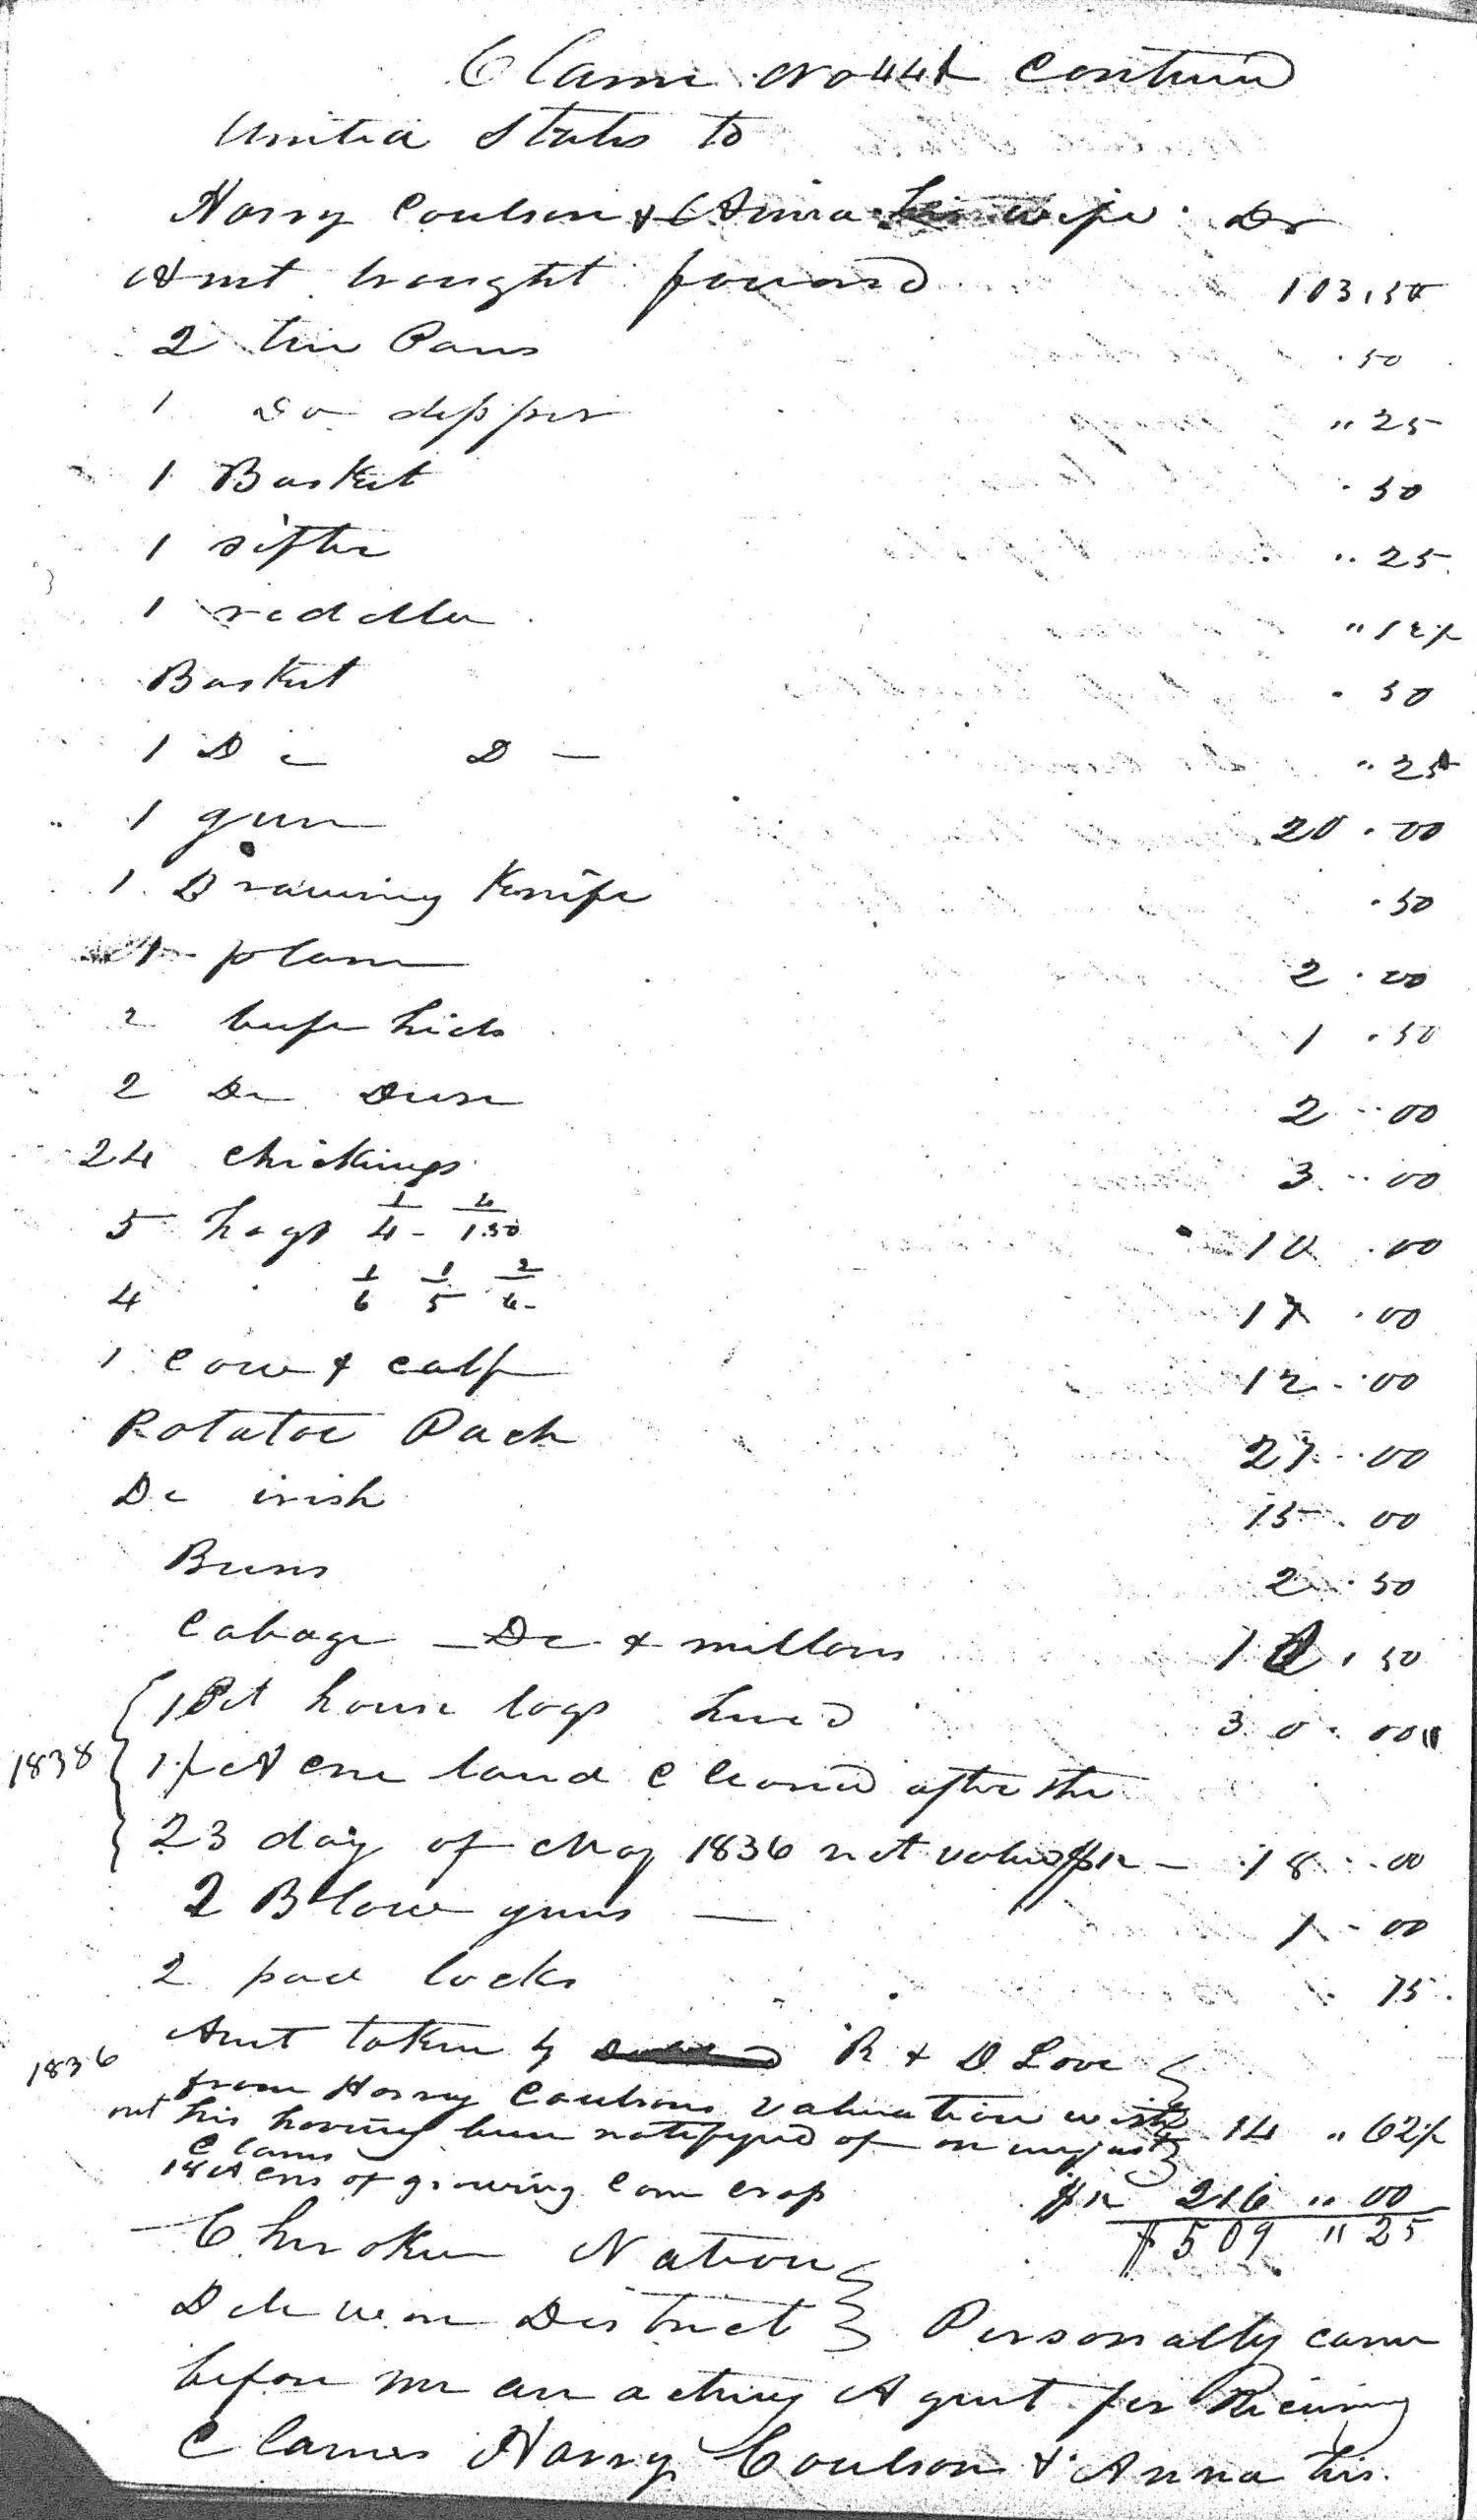 Claim No 441 Continud
United States to
Harry Coulson & Anna his wife Dr
Amt brought forward 103.50
2 tin Pans .50
1 Do dipper " 25
1 Basket .50
1 sifter " 25
1 reddle " 12½
Basket .50
1 Do D — " 25
1 gun 20.00
1 Drawing Knife .50
1 plane 2.00
2 beef hids 1.50
2 Do Deer 2.00
24 chickings 3.00
5 hogs 1/4 - 4/1.50 10.00
4 1/6 1/5 2/4 - 17.00
1 Cow & calf 12.00
Potatoe Pach 27.00
Do irish 15.00
Beens 2.50
Cabage — Do & millons 10.50
1 Set house logs hued 30.00
1838 1½ Acre land Cleared after the
23 day of May 1836 not valued $12 — 18.00
2 Blow guns — 1 - 00
2 pad locks 75
1836 Amt taken by R & D Love
from Harry Coulsons valuation with
out his having been notifyed of an unjust 14 " 62½
Clame
18 Acres of growing Corn Crop $12 216 " 00
$509 " 25
Cherokee Nation
Deleware District Personally came
before me an acting Agent for Receiving
Clames Harry Coulson & Anna his